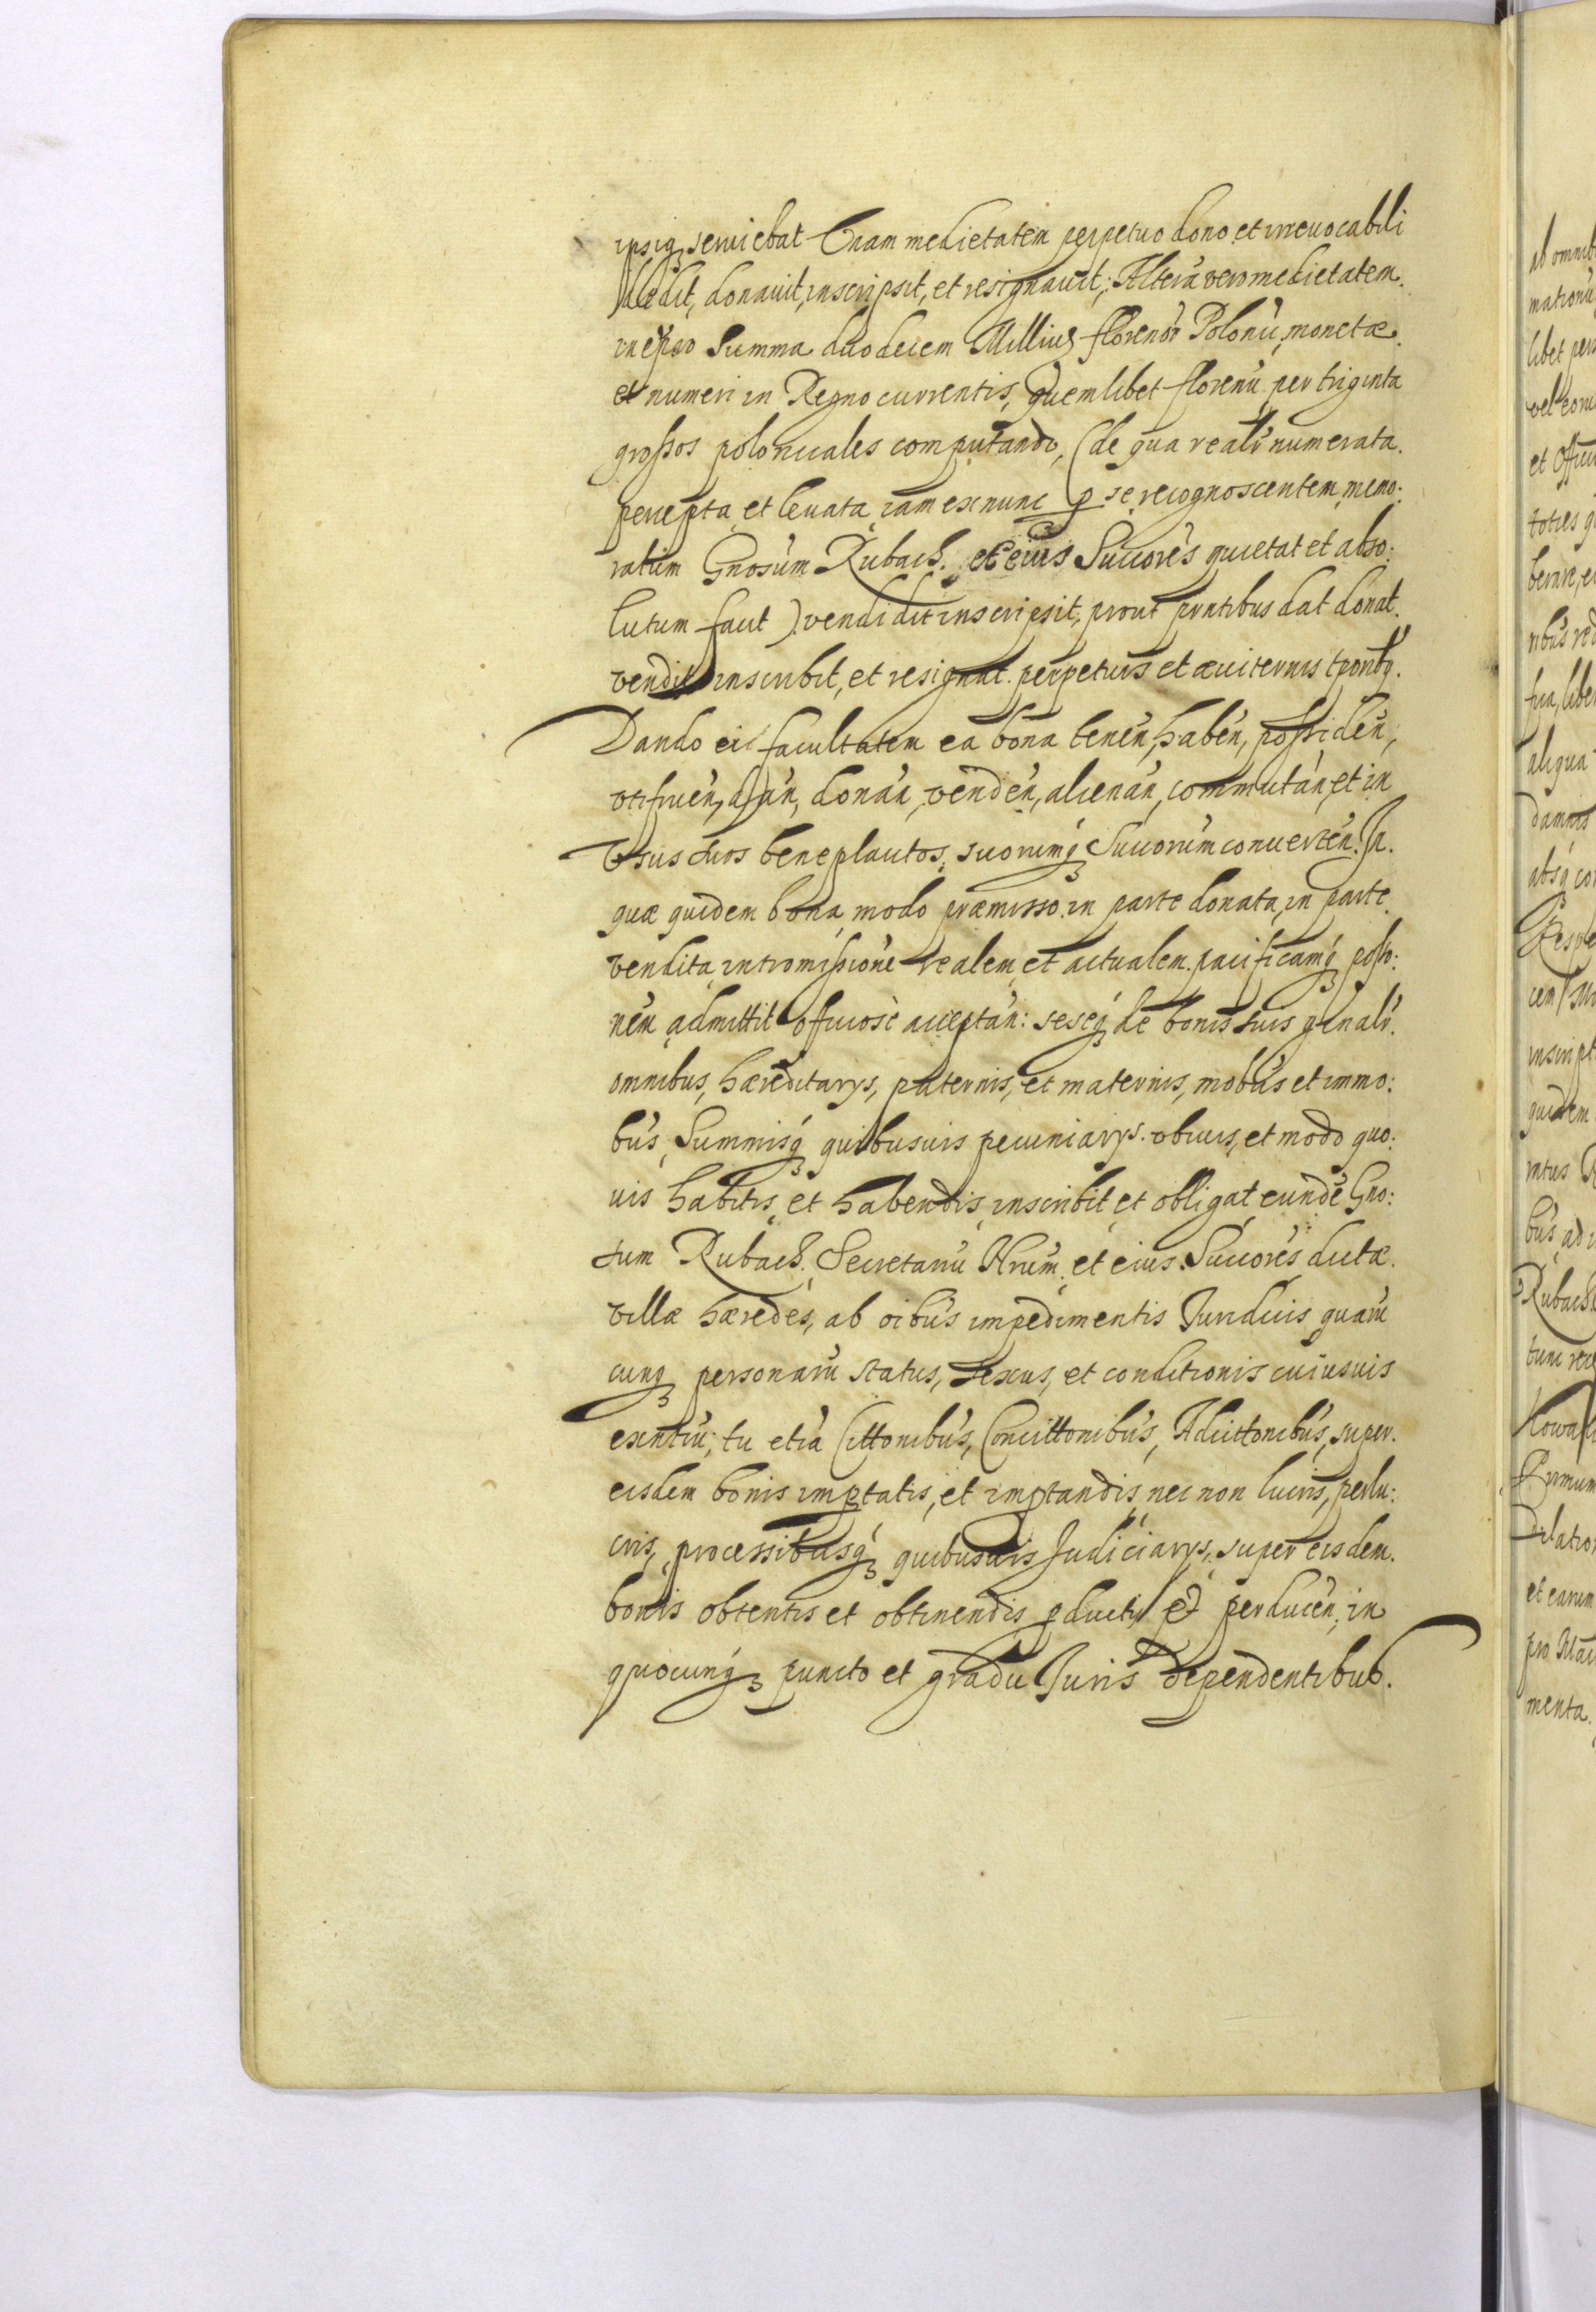 ipsiq seruiebat Vnam medietatem perpetuo dono et irreuocabili
dedit, donauit, inscripsit, et resignauit; Alterā vero medietatem
in et pro Summa duodecem Milliuq florenor Polonū, monetæ
et numeri in Regno currentis, quemlibet florenū per triginta
grossos polonicales computando, (de qua realr numerata
percepta et leuata iam ex nunc p se recognoscentem memo:
ratum Gnosum Rubach. et eius Succores quietat et abso:
lutum facit). vendidit inscripsit, prout pntibus dat donat
vendit inscribit, et resignat perpetuis et æuiternis tporibq.
Dando ei facultatem ea bona tenen, haben, possiden,
vtifruen, dan, donan, venden, alienan, commutan, et in
Vsus suos beneplacitos, suorumq Succorum conuerten. In
quæ quidem bona modo præmisso in parte donata, in parte
vendita intromissione realem et actualem pacificamq posso:
nem admittit officiose acceptan: seseq de bonis suis gnalr
omnibus, hæreditarys, paternis, et maternis, mobus et immo:
bus, Summisq quibusuis pecuniarys vbiuis, et modo quo:
uis habitis et habendis inscribit et obligat eundē Gno:
sum Rubach. Secretariū Nrum et eius Succores dictæ
villæ hæredes, ab oibus impedimentis Juridicis quarū
cunq personarū status, sexus, et conditionis cuiusuis
exntiū; tu etiā Cittonibus, Concittonibus, Adcittonibus, super
eisdem bonis imptatis, et imptandis nec non lucris, perlu:
cris, processibusq quibusuis Judiciarys, super eisdem
bonis obtentis et obtinendis pductis et perducen; in
quocunq puncto et gradu Juris dependentibus.
ab omnib
libet per
et Offici
toties q
aliqua
damnis
absq co
inscript
quidem
Rubach
Primum
Dilatio
et earum
menta.